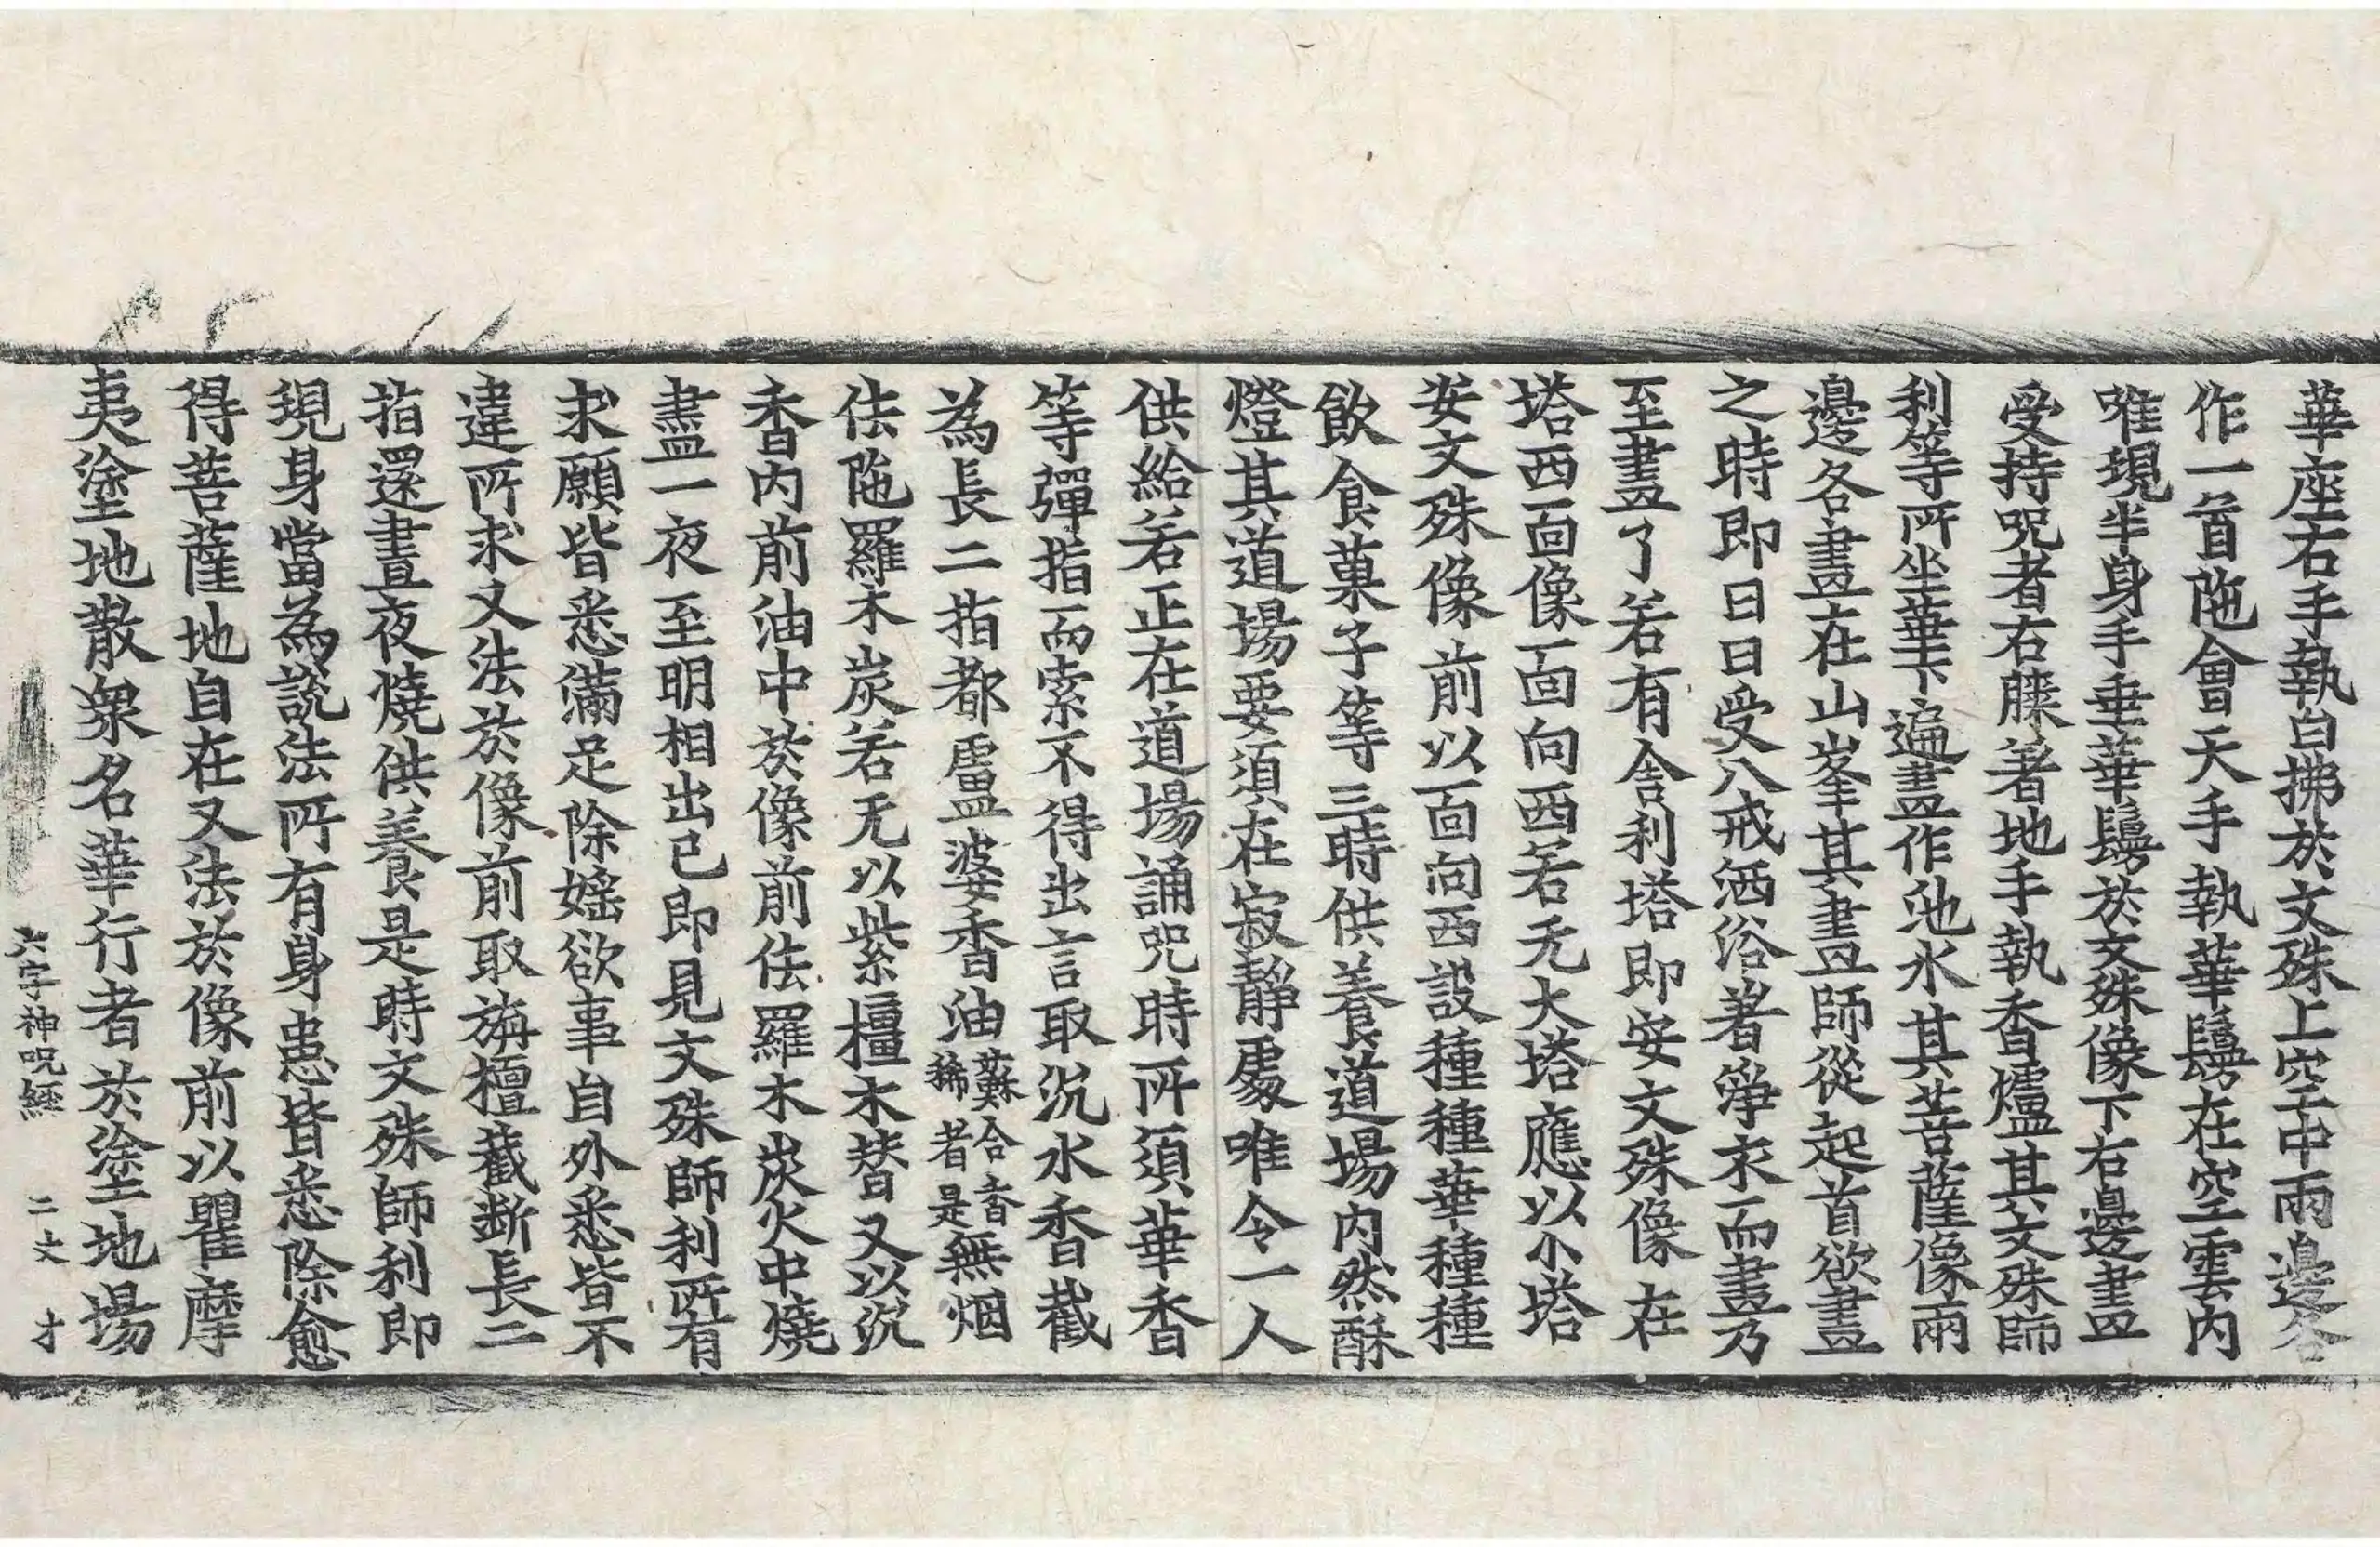 華座右手執白拂於文殊上空中兩邊各
作一首陁會天手執華鬘在空雲內
唯現半身手垂華鬘於文殊像下右邊畫
受持呪者右膝著地手執香爐其文殊師
利等所坐華下遍畫作池水其菩薩像兩
邊各畫在山峯其畫師從起首欲畫
之時即日日受八戒洒浴著淨衣而畫乃
至畫了若有舍利塔即安文殊像在
塔西面像面向西若无大塔應以小塔
安文殊像前以面向西設種種華種種
飲食菓子等三時供養道場內然酥
燈其道場要須在寂靜處唯令一人
供給若正在道場誦咒時所須華香
等彈指而索不得出言取沉水香截
為長二指都盧婆香油蘇合香是無烟稀者
佉陁羅木炭若无以紫橿木替又以沉
香內前油中於像前佉羅木炭火中燒
盡一夜至明相出已即見文殊師利所有
求願皆悉滿足除婬欲事自外悉皆不
違所求又法於像前取旃檀截斷長二
指還晝夜燒供養是時文殊師利即
現身當為說法所有身患皆悉除愈
得菩薩地自在又法於像前以瞿摩
夷塗地散眾名華行者於塗地場
六字神呪經 二丈 才